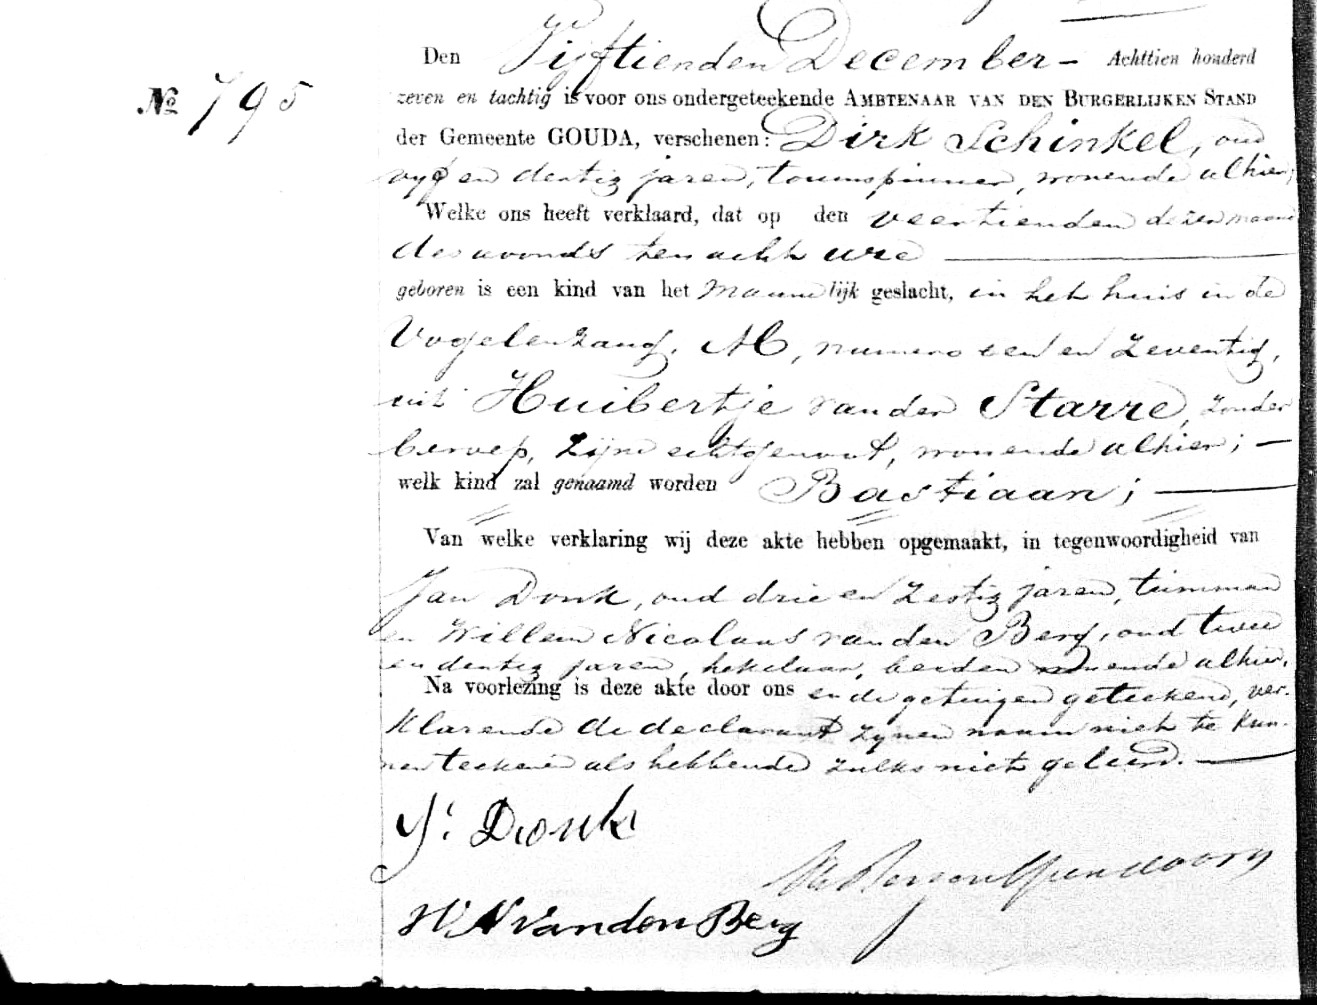 Nº 795
Den Vijftienden December – Achttien honderd
zeven en tachtig is voor ons ondergeteekende AMBTENAAR VAN DEN BURGERLIJKEN STAND
der Gemeente GOUDA, verschenen: Dirk Schinkel, oud
vyf en dertig jaren, touwspinner, wonende alhier;
Welke ons heeft verklaard, dat op den veertienden dezer maand
des avonds ten acht ure
geboren is een kind van het Mannelijk geslacht, in het huis in de
Vogelenzang, M, numero een en zeventig,
uit Huibertje van der Starre, zonder
beroep, zijne echtgenoot, wonende alhier; —
welk kind zal genaamd worden Bastiaan; —
Van welke verklaring wij deze akte hebben opgemaakt, in tegenwoordigheid van
Jan Donk, oud drie en zestig jaren, tuinman
en Willem Nicolaas van den Berg, oud twee
en dertig jaren, hekelaar, beiden wonende alhier.
Na voorlezing is deze akte door ons en de getuigen geteekend, ver-
klarende de declarant zynen naam niet te kun-
nen teekenen als hebbende zulks niet geleerd. —
J. Donk
W N van den Berg